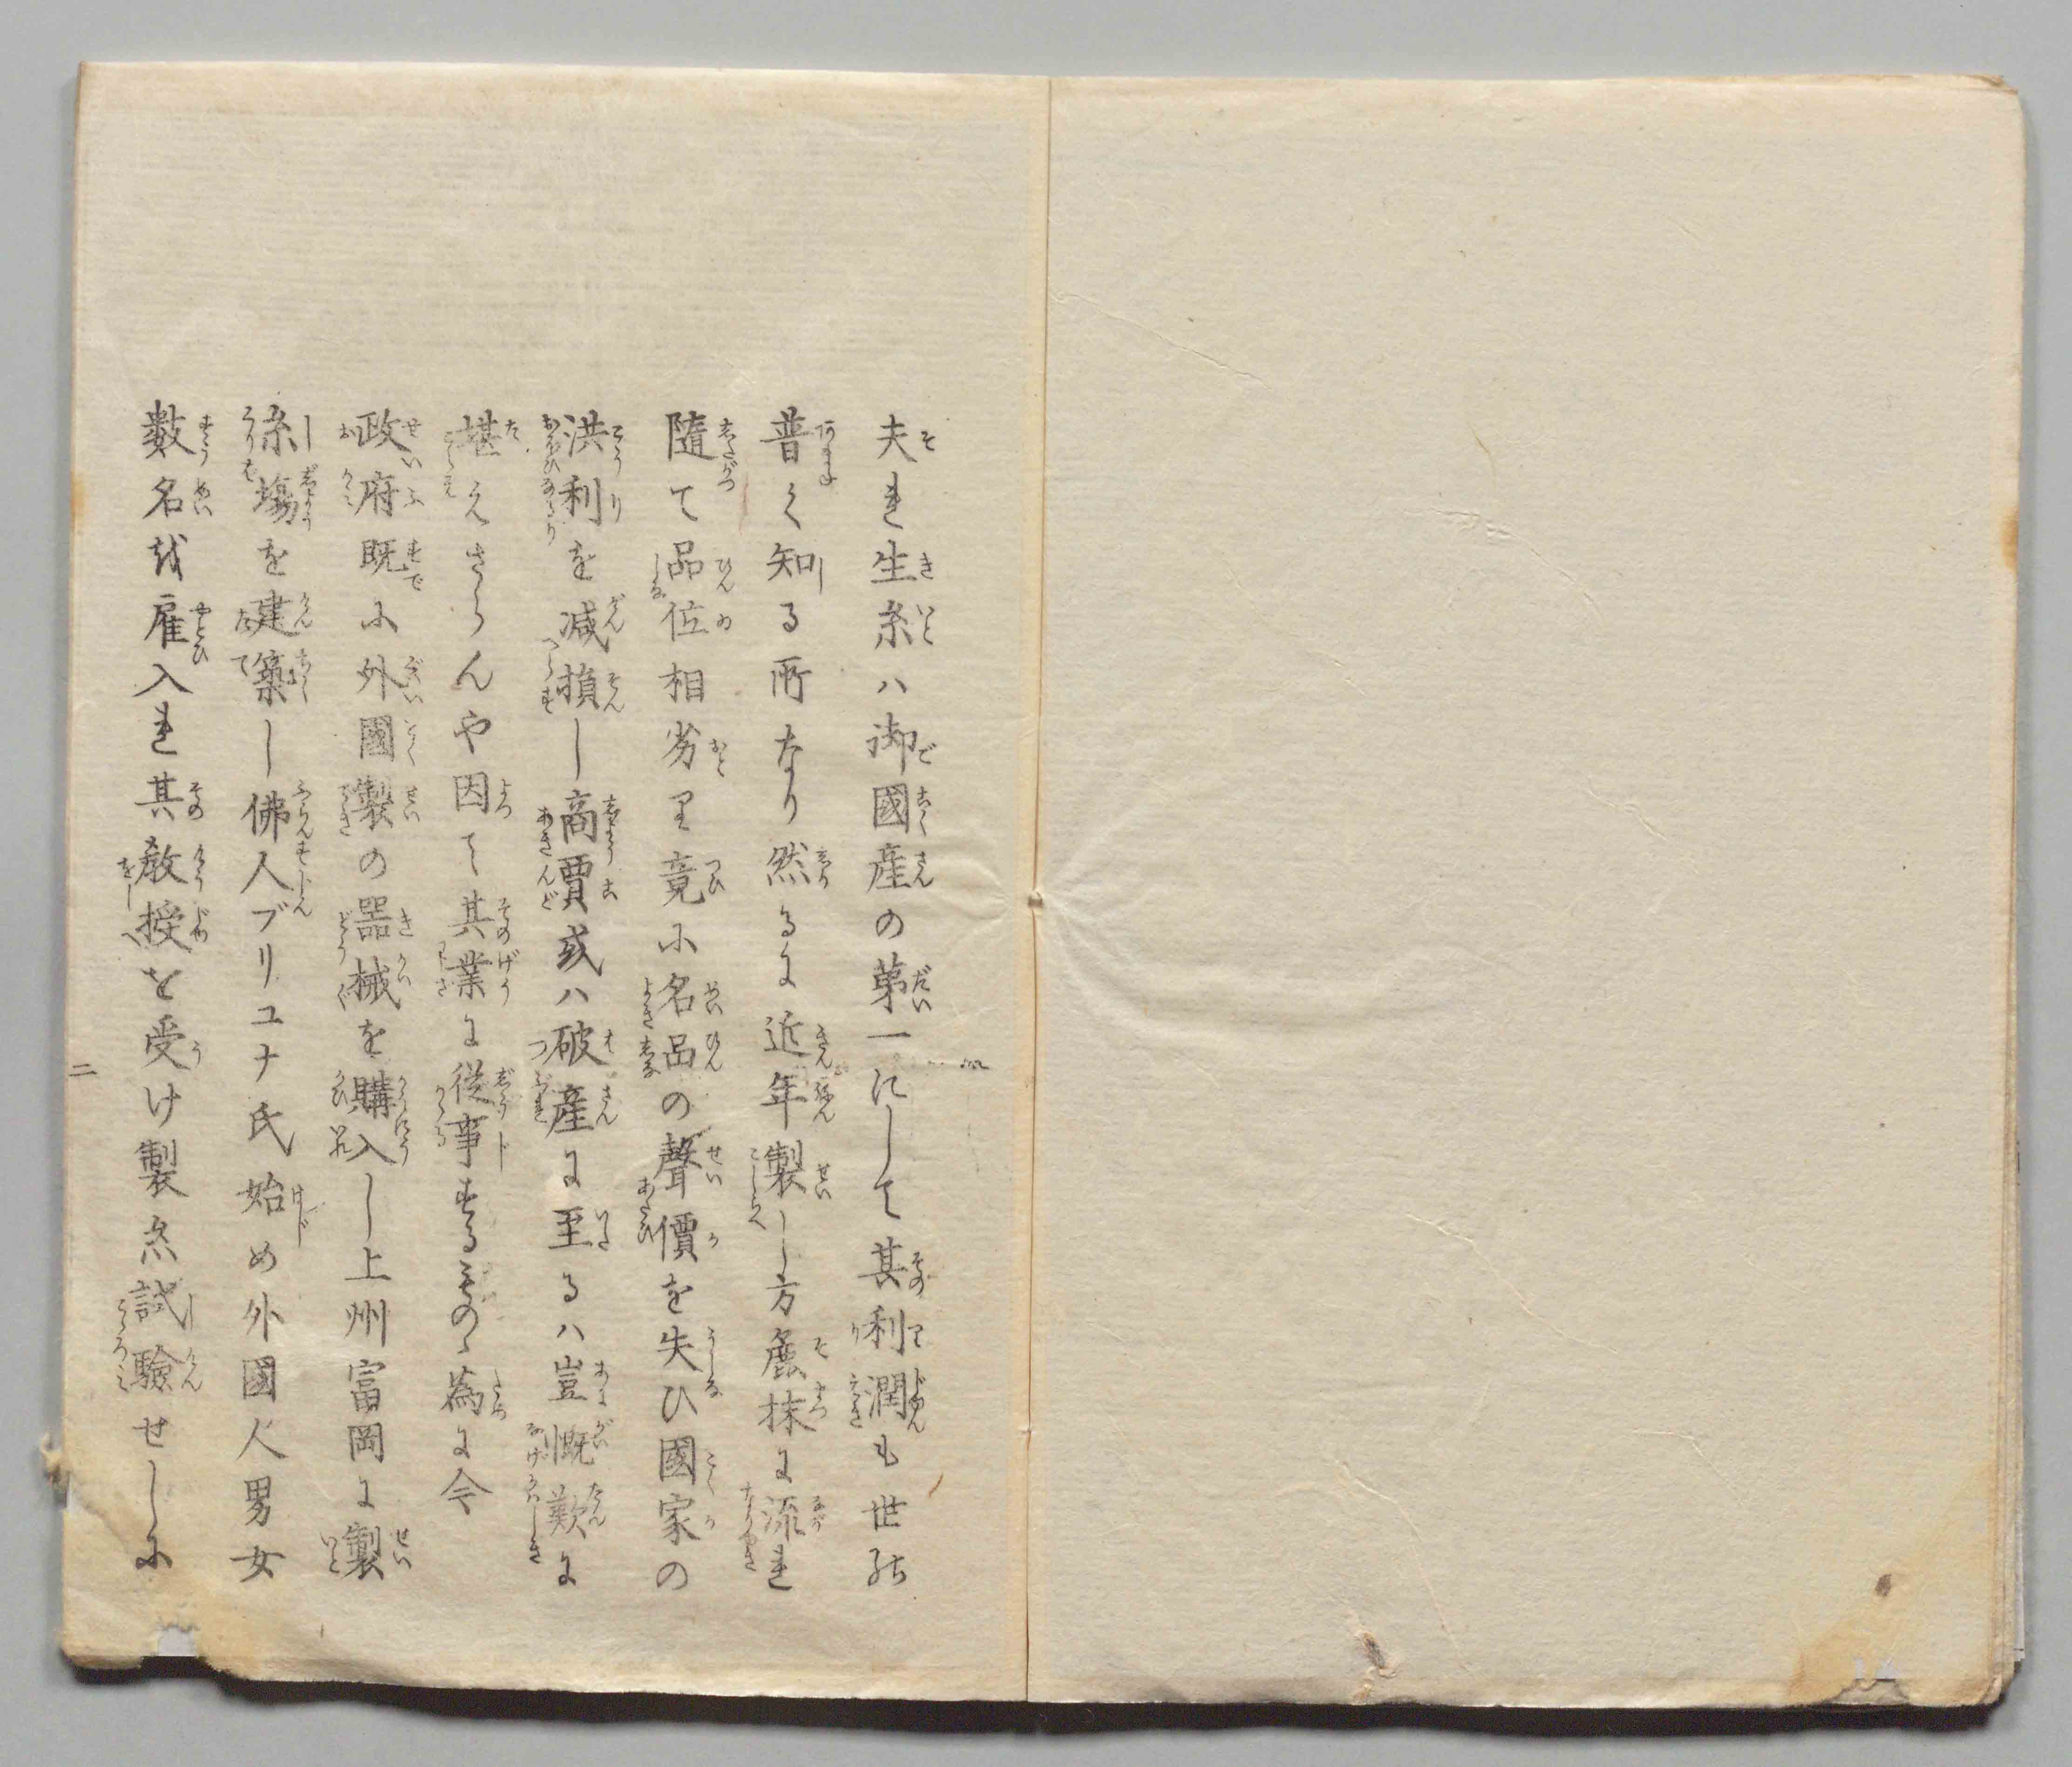 夫れ生糸ハ御國産の第一にして其利潤も世の
普く知る所なり然るに近年製し方麁抹に流れ
隨て品位相劣り竟に名品の聲價を失ひ國家の
洪利を減損し商賈或ハ破産に至るハ豈慨歎に
堪えさらんや因て其業に従事するものゝ為に今
政府既に外國製の器械を購入し上州富岡に製
糸場を建築し佛人ブリユナ氏始め外國人男女
數名を雇入れ其教授を受け製糸試驗せしに
二